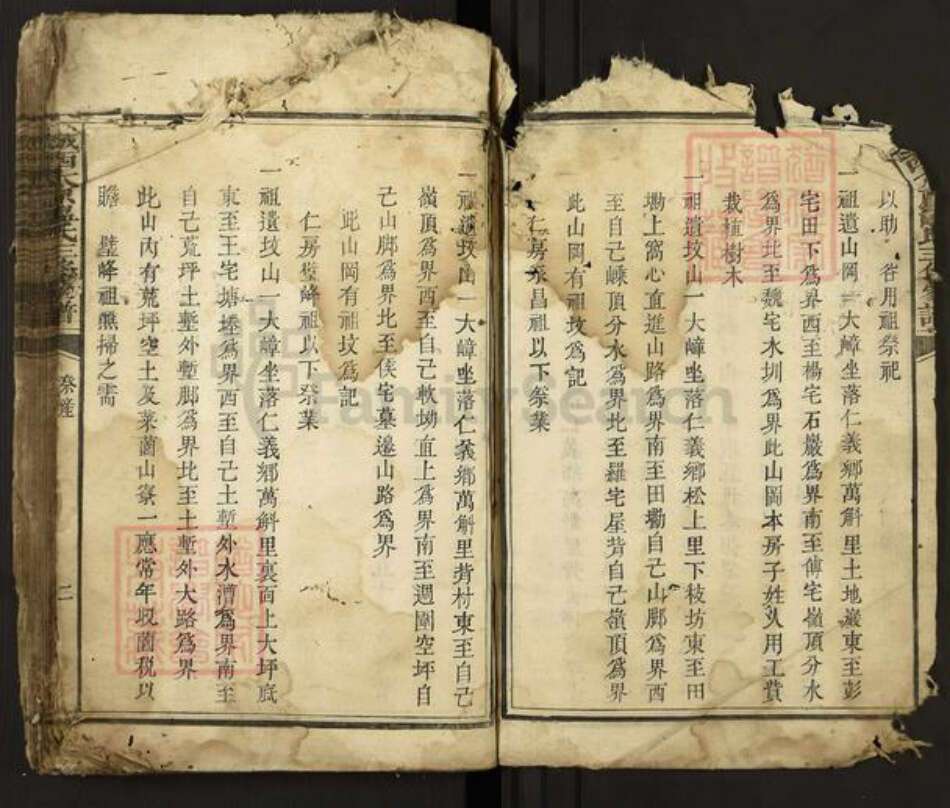 以助 省用祖祭祀
一祖遺山岡一大嶂坐落仁義鄉萬斛里土地巖東至彭
宅田下為界西至楊宅石巖為界南至傅宅嶺頂分水
為界北至魏宅水圳為界此山岡本房子姓乆用工費
栽植樹木
一祖遺坟山一大嶂坐落仁義鄉松上里下枝坊東至田
塝上窩心直進山路為界南至田塝自己山脚為界西
至自己嵊頂分水為界北至羅宅屋背自己嶺頂為界
此山岡有祖坟為記
仁房永昌祖以下祭業
一祖遺坟山一大嶂坐落仁義鄉萬斛里背村東至自己
嶺頂為界西至自己軟坳直上為界南至週圍空坪自
己山脚為界北至侯宅墓邊山路為界
此山岡有祖坟為記
仁房 峰祖以下祭業
一祖遺坟山一大嶂坐落仁義鄉萬斛里裏 上大坪底
東至王宅塘墘為界西至自己土塹外水漕為界南至
自己荒坪土塹外塹脚為界北至土塹外大路為界
此山內有荒坪空土及菜薗山寮一應常年收薗稅以
贍 璧峰祖醮掃之需
祭產
二
Family Search